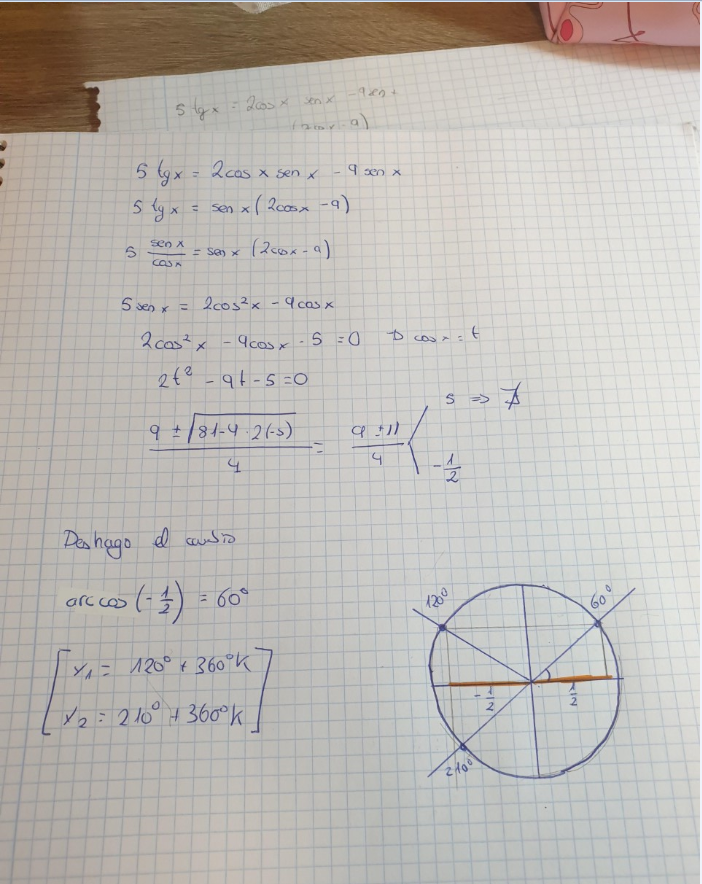 5 tg x = 2cos x sen x - 9 sen x
5 tg x = 2cos x sen x - 9 sen x
5 tg x = sen x (2cos x - 9)
5 sen x / cos x = sen x (2cos x - 9)
5 sen x = 2cos² x - 9cos x
2cos² x - 9cos x - 5 = 0 → cos x = t
2t² - 9t - 5 = 0
9 ± √81-4·2(-5) / 4 = 9 ± 11 / 4
5 ⇒ ∄
-1/2
Deshago el cambio
arccos (-1/2) = 60°
x1 = 120° + 360°K
x2 = 210° + 360°K
120°
60°
-1/2
1/2
210°